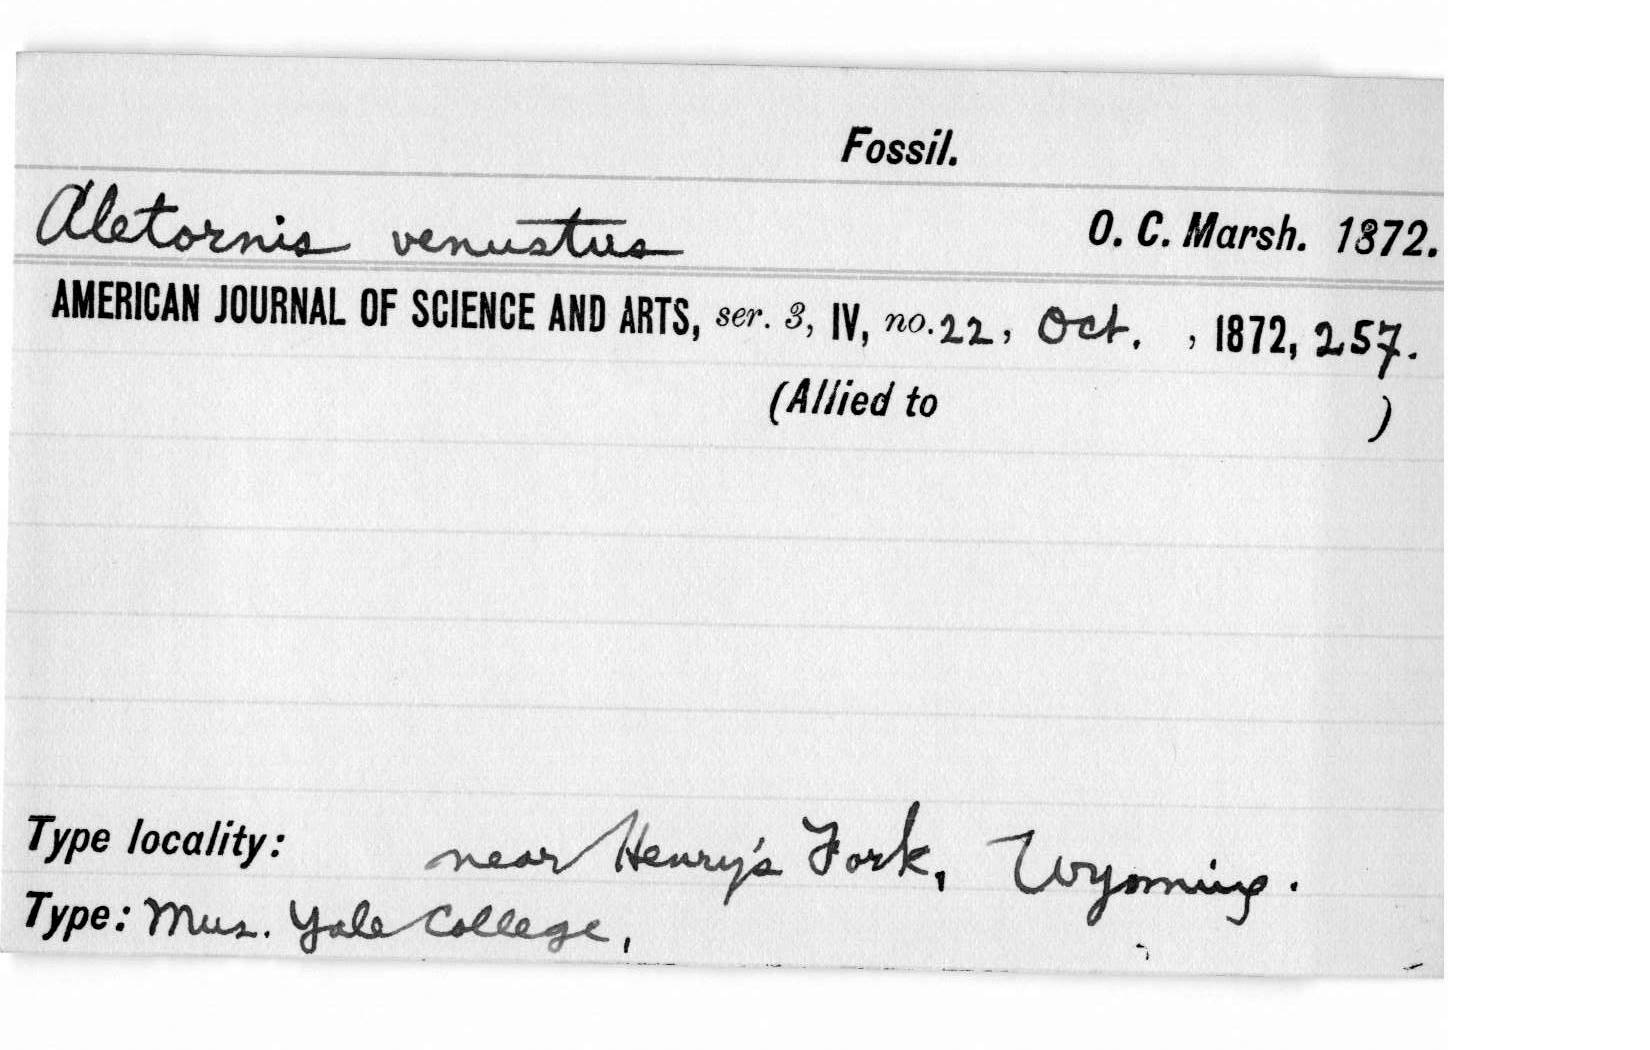 Fossil.
Aletornis venustus O. C. Marsh. 1872.
AMERICAN JOURNAL OF SCIENCE AND ARTS, ser. 3, IV, no. 22, Oct. , 1872, 257.
(Allied to )
Type locality: near Henry's Fork, Wyoming.
Type: Mus. Yale College,